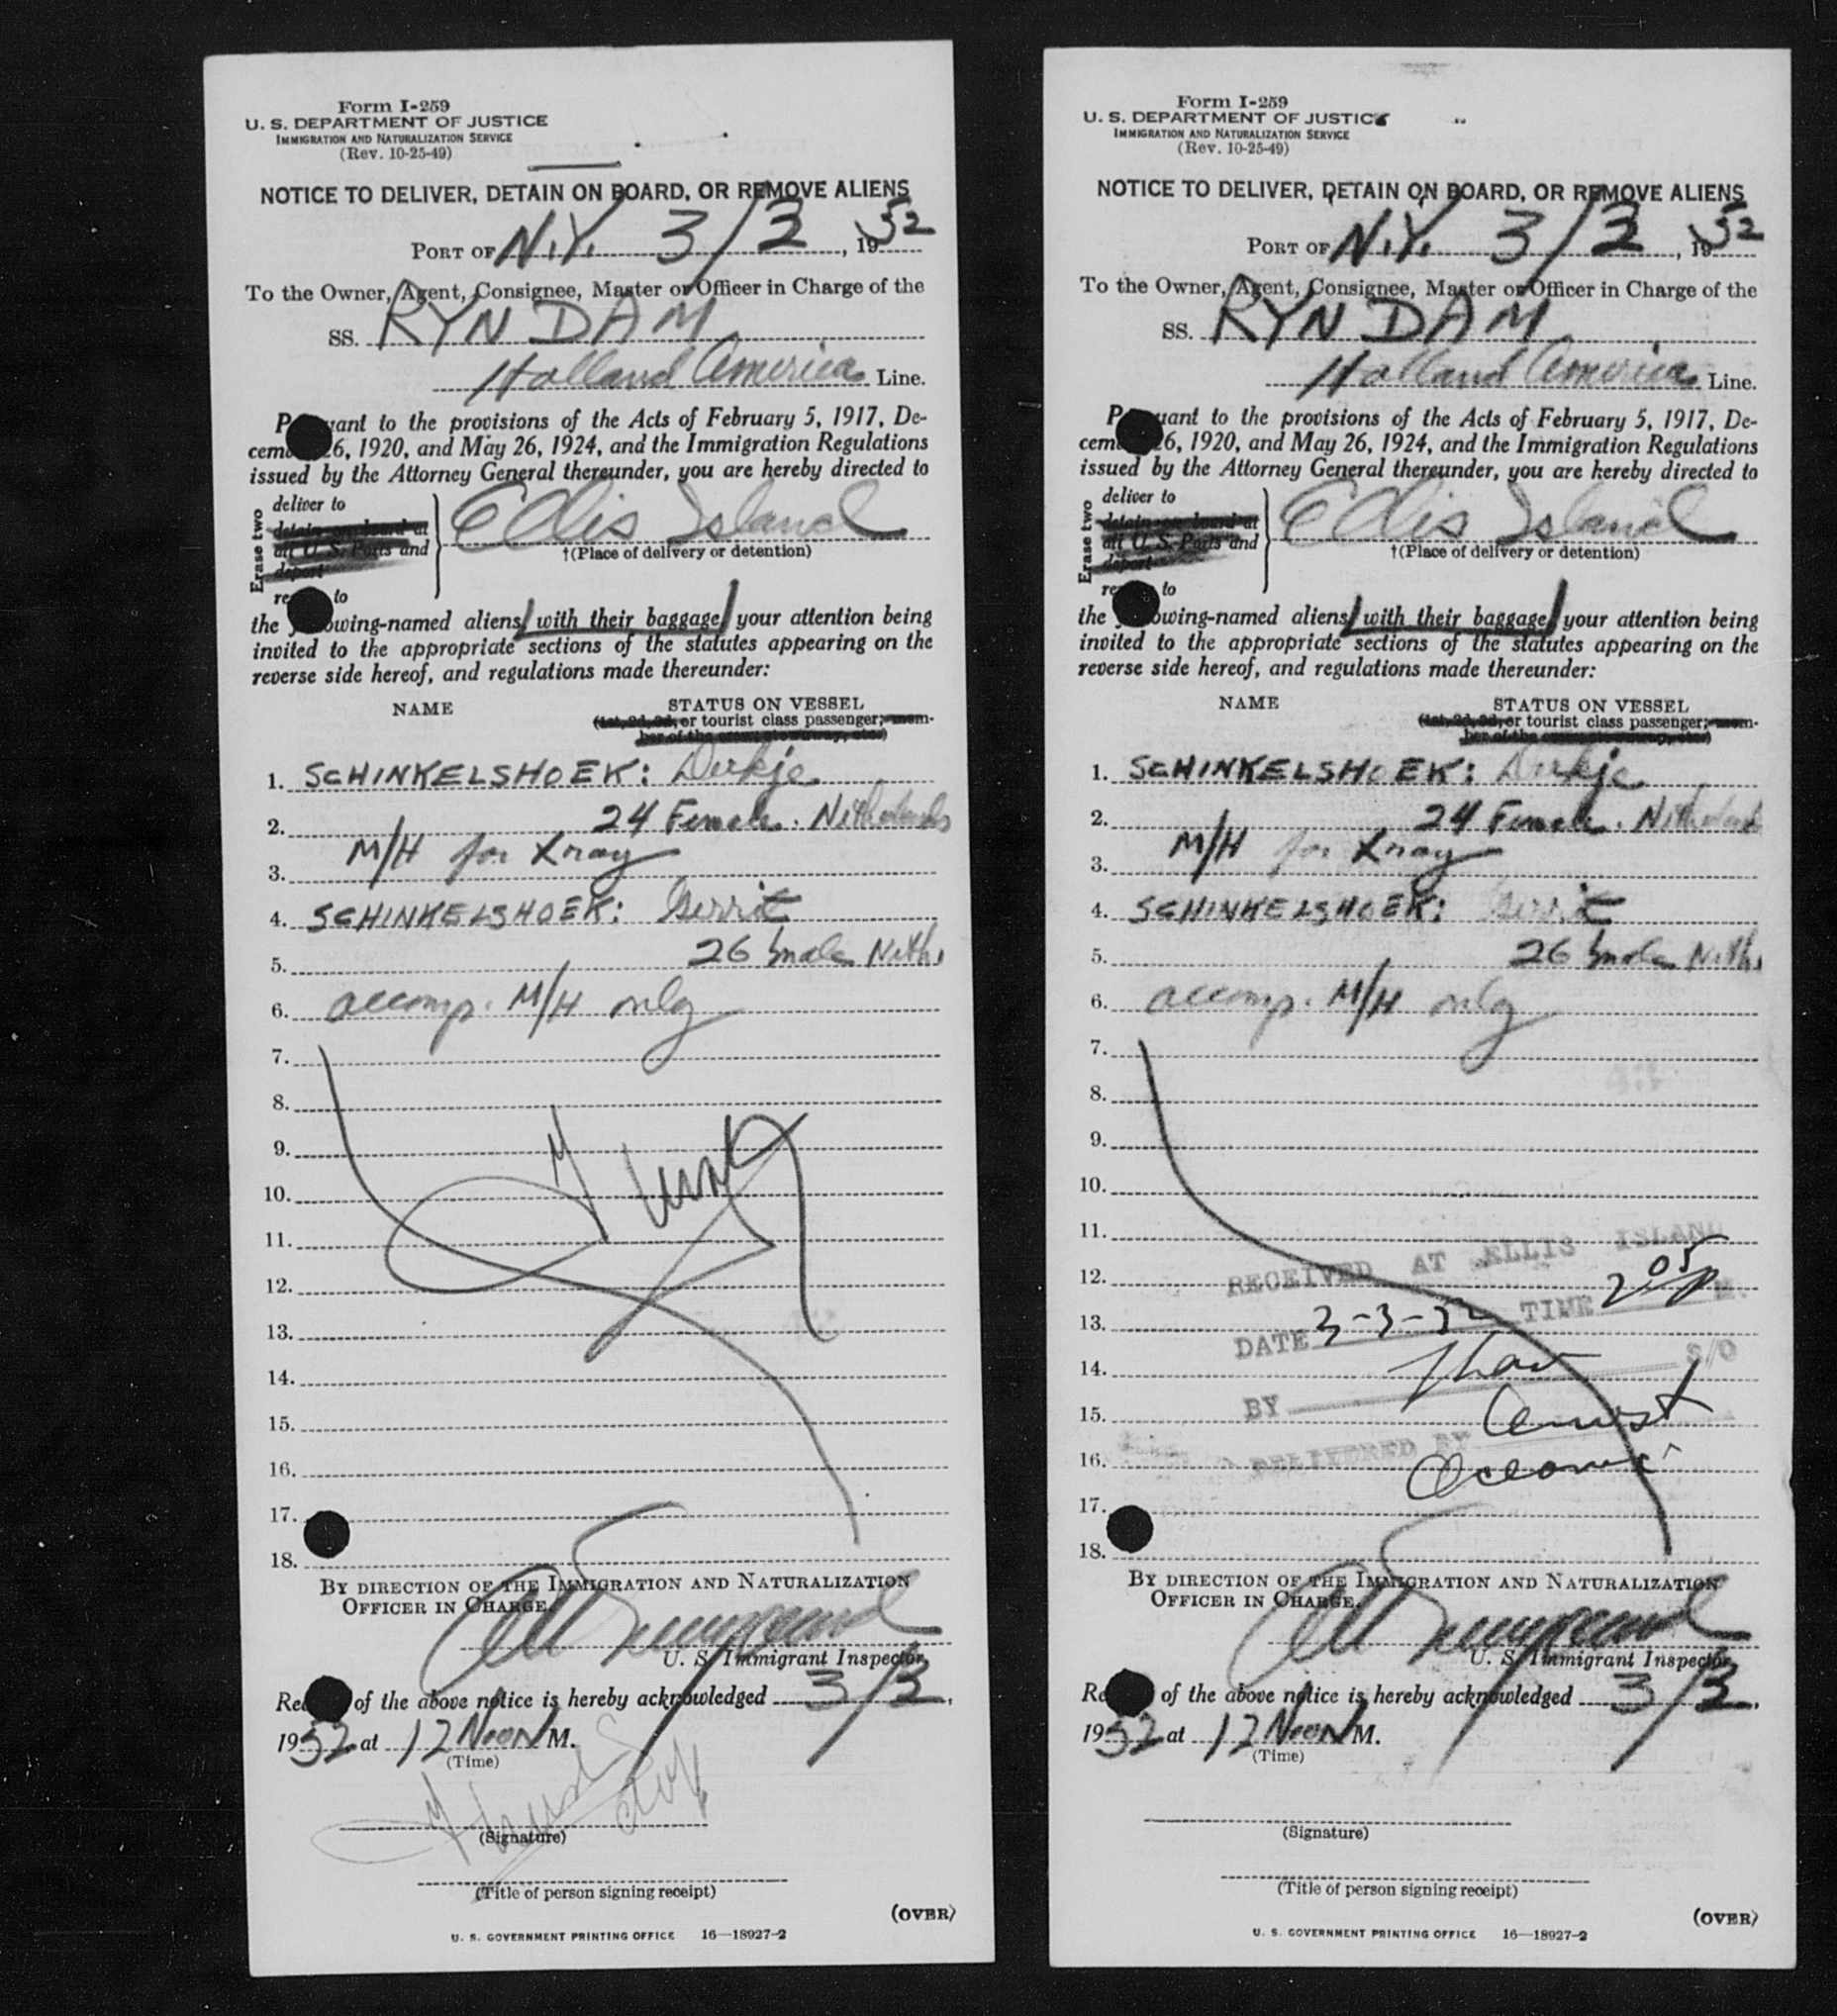 Form I-259
U. S. DEPARTMENT OF JUSTICE
IMMIGRATION AND NATURALIZATION SERVICE
(Rev. 10-25-49)
NOTICE TO DELIVER, DETAIN ON BOARD, OR REMOVE ALIENS
PORT OF N.Y. 3/3, 1952
To the Owner, Agent, Consignee, Master or Officer in Charge of the
SS. RYNDAM
Holland America Line.
Pursuant to the provisions of the Acts of February 5, 1917, De-
cember 26, 1920, and May 26, 1924, and the Immigration Regulations
issued by the Attorney General thereunder, you are hereby directed to
Erase two
deliver to
detain on board at
all U. S. Ports and
deport
remove to
Ellis Island
†(Place of delivery or detention)
the following-named aliens with their baggage your attention being
invited to the appropriate sections of the statutes appearing on the
reverse side hereof, and regulations made thereunder:
NAME STATUS ON VESSEL
(1st, 2d, 3d, or tourist class passenger; mem-
ber of the crew; stowaway, etc.)
1. SCHINKELSHOEK: Dirkje
2. 24 Female. Netherlands
3. M/H for Xray
4. SCHINKELSHOEK: Gerrit
5. 26 male Neth.
6. accomp. M/H only
7.
8.
9.
10.
11.
12.
13.
14.
15.
16.
17.
18.
BY DIRECTION OF THE IMMIGRATION AND NATURALIZATION
OFFICER IN CHARGE.
U. S. Immigrant Inspector.
Receipt of the above notice is hereby acknowledged 3/3,
1952 at 12 Noon M.
(Time)
(Signature)
(Title of person signing receipt)
(OVER)
U. S. GOVERNMENT PRINTING OFFICE 16—18927-2
Form I-259
U. S. DEPARTMENT OF JUSTICE
IMMIGRATION AND NATURALIZATION SERVICE
(Rev. 10-25-49)
NOTICE TO DELIVER, DETAIN ON BOARD, OR REMOVE ALIENS
PORT OF N.Y. 3/3, 1952
To the Owner, Agent, Consignee, Master or Officer in Charge of the
SS. RYNDAM
Holland America Line.
Pursuant to the provisions of the Acts of February 5, 1917, De-
cember 26, 1920, and May 26, 1924, and the Immigration Regulations
issued by the Attorney General thereunder, you are hereby directed to
Erase two
deliver to
detain on board at
all U. S. Ports and
deport
remove to
Ellis Island
†(Place of delivery or detention)
the following-named aliens with their baggage your attention being
invited to the appropriate sections of the statutes appearing on the
reverse side hereof, and regulations made thereunder:
NAME STATUS ON VESSEL
(1st, 2d, 3d, or tourist class passenger; mem-
ber of the crew; stowaway, etc.)
1. SCHINKELSHOEK: Dirkje
2. 24 Female. Netherlands
3. M/H for Xray
4. SCHINKELSHOEK: Gerrit
5. 26 male Neth.
6. accomp. M/H only
7.
8.
9.
10.
11.
12.
13.
14.
15.
16.
17.
18.
RECEIVED AT ELLIS ISLAND
DATE 3-3-52 TIME 2 05 P M.
BY S/O
DELIVERED BY
BY DIRECTION OF THE IMMIGRATION AND NATURALIZATION
OFFICER IN CHARGE.
U. S. Immigrant Inspector.
Receipt of the above notice is hereby acknowledged 3/3,
1952 at 12 Noon M.
(Time)
(Signature)
(Title of person signing receipt)
(OVER)
U. S. GOVERNMENT PRINTING OFFICE 16—18927-2